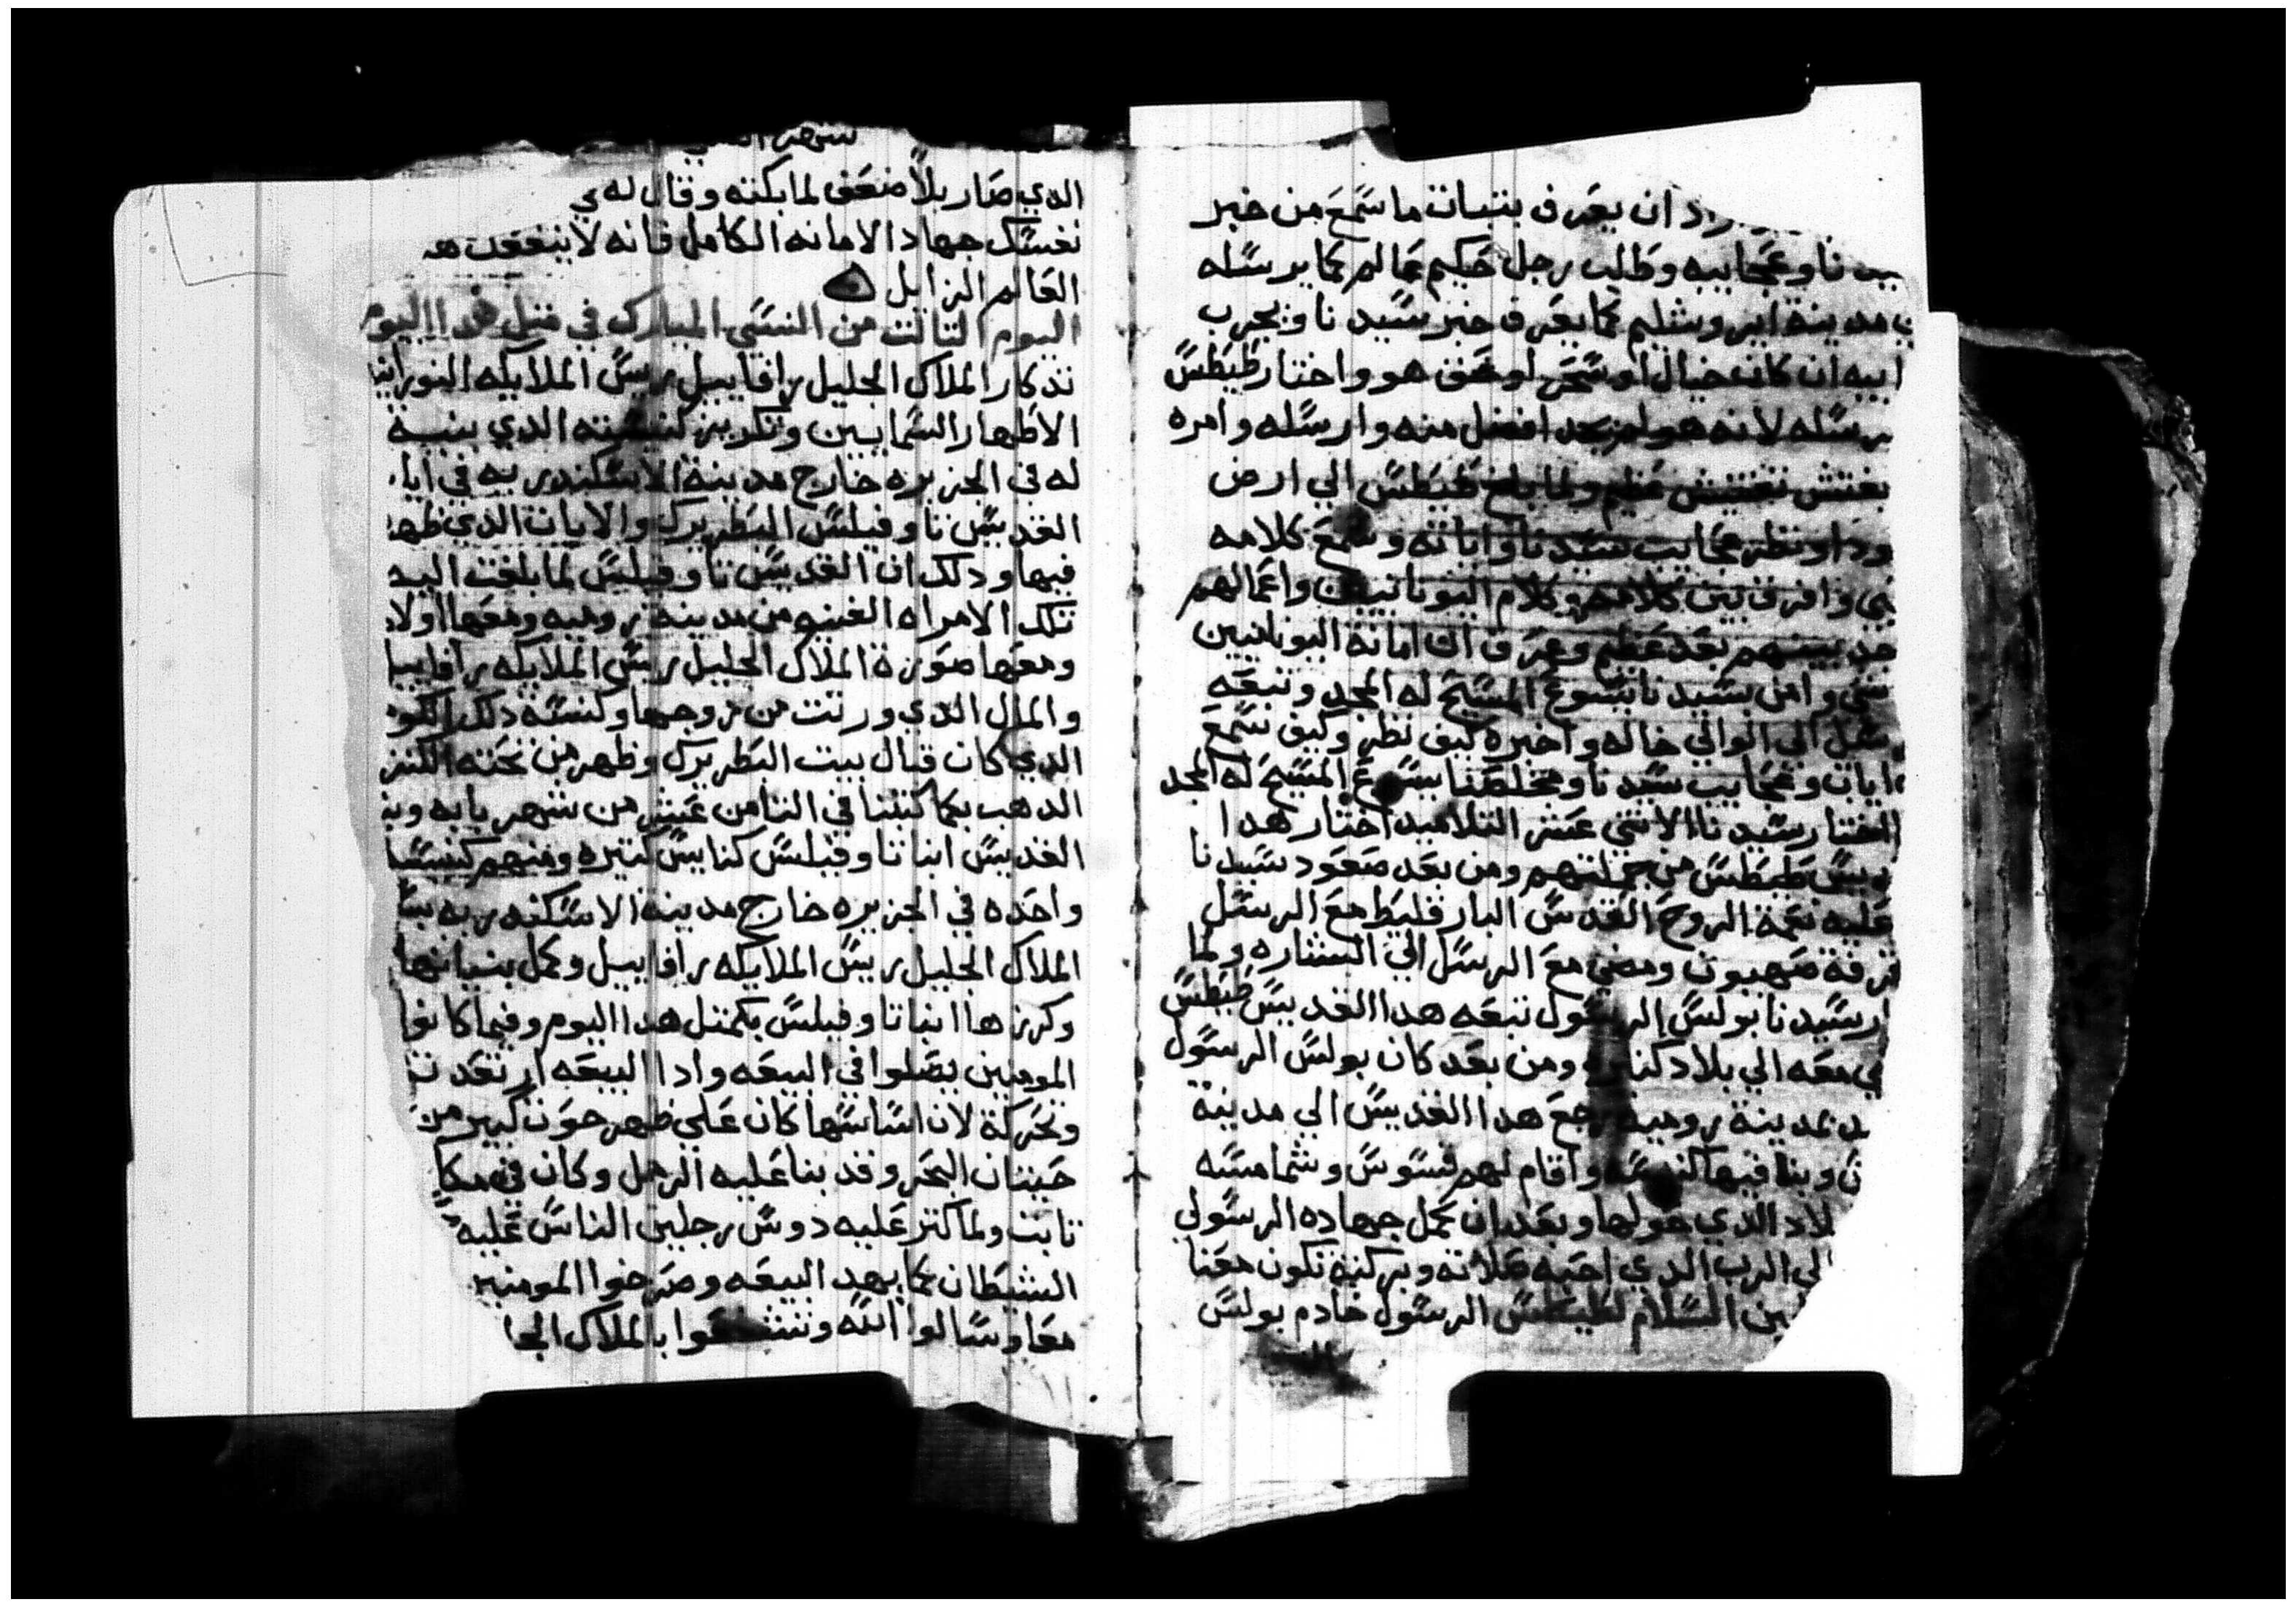 اراد ان يعرف بتبات ما سمع من خبر
نا وعجايبه وطلب رجل حكيم عالم كما يرسله
مدينة ايروشليم كما يعرف خبر سيدنا ويجرب
ان كانت خيال او سحر او حق هو واختار طيطس
يرسله لانه هو لم يجد افضل منه وارسله وامره
يفتش تفتيش عظيم ولما بلغ طيطس الي ارض
ودا ونظر عجايب سيدنا واياته وسمع كلامه
وافرق بين كلامهم وكلام اليونانيين واعمالهم
جد بينهم بعد عظيم وعرف ان امانة اليونانيين
شي وامن بسيدنا يسوع المسيح له المجد وتبعه
الي الوالي خاله واخبره كيف نظر وكيف سمع
ايات وعجايب سيدنا ومخلصنا يسوع المسيح له المجد
اختار سيدنا الاثني عشر التلاميد اختار هدا
طيطس من جملتهم ومن بعد صعود سيدنا
عليه نعمة الروح القدس البارقليط مع الرسل
غرفة صهيون ومضي مع الرسل الي البشاره ولما
سيدنا بولس الرسول تبعه هدا القديس طيطس
معه الي بلاد كثيره ومن بعد كان بولس الرسول
بمدينة روميه رجع هدا القديس الي مدينة
وبنا فيها كنيسه واقام لهم قسوس وشمامسه
بلاد الدي حولها وبعد ان كمل جهاده الرسولي
الي الرب الدي احبه صلاته وبركته تكون معنا
السلام لطيطس الرسول خادم بولس
شهر
الدي صار بلا ضعف لما بكته وقال له
نفسك جهاد الامانه الكامل فانه لا ينفعك هد
العالم الزايل
اليوم التالت من النسي المبارك في متل هدا اليوم
تدكار الملاك الجليل رافاييل ريس الملايكه النوراني
الاطهار السمايين وتكريز كنيسته الدي بنية
له في الجزيره خارج مدينة الاسكندريه في ايا
القديس تاوفيلس البطريرك والايات الدي ظهر
فيها ودلك ان القديس تاوفيلس لما بلغت اليه
تلك الامراه الغنيه من مدينة روميه ومعها اولاد
ومعها صورة الملاك الجليل ريس الملايكه رافاييل
والمال الدي ورتت من زوجها وكنسه دلك الكوم
الدي كان قبال بيت البطريرك وظهر من تحته الكنز
الدهب بكما كتبنا في التامن عشر من شهر بابه وبنا
القديس انبا تاوفيلس كنايس كتيره ومنهم كنيسه
واحده في الجزيره خارج مدينة الاسكندريه
الملاك الجليل ريس الملايكه رافاييل وكمل بنيانها
وكرزها انبا تاوفيلس بكمتل هدا اليوم وفيما كانوا
المومنين يصلوا في البيعه وادا البيعه ارتعدت
وتحركة لان اساسها كان علي ظهر حوت كبير من
حيتان البحر وقد بنا عليه الرمل وكان في مكا
تابت ولما كتر عليه دوس رجلين الناس عليه
الشيطان كما يهد البيعه وصرخوا المومنين
معا وسالوا الله وتشفعوا بالملاك الجل